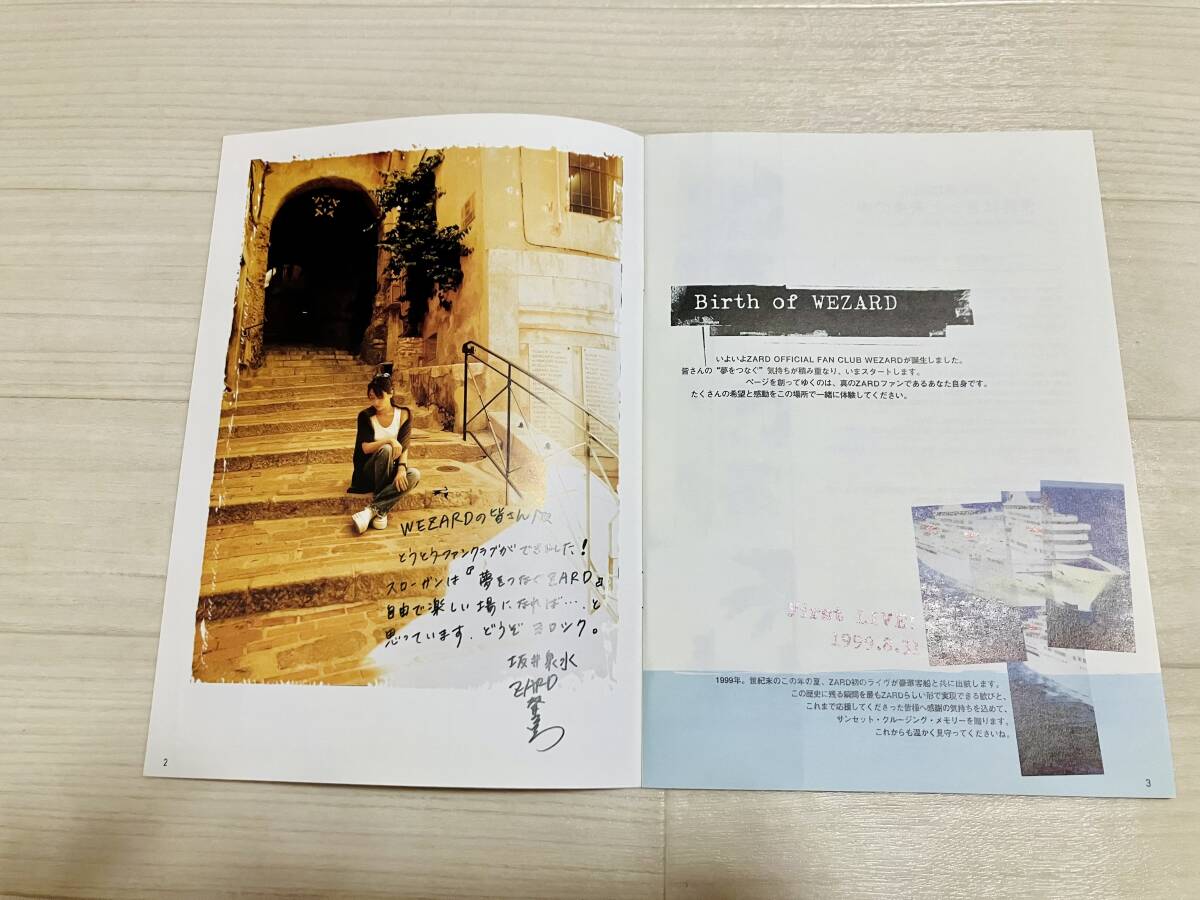 WEZARDの皆さんへ
とうとうファンクラブができました!
スローガンは『夢をつなぐZARD』
自由で楽しい場になれば…、と
思っています。どうぞヨロシク。
坂井泉水
ZARD
2
Birth of WEZARD
いよいよZARD OFFICIAL FAN CLUB WEZARDが誕生しました。
皆さんの“夢をつなぐ”気持ちが積み重なり、いまスタートします。
ページを創ってゆくのは、真のZARDファンであるあなた自身です。
たくさんの希望と感動をこの場所で一緒に体験してください。
First LIVE!
1999.8.31
1999年。世紀末のこの年の夏、ZARD初のライヴが豪華客船と共に出航します。
この歴史に残る瞬間を最もZARDらしい形で実現できる歓びと、
これまで応援してくださった皆様へ感謝の気持ちを込めて、
サンセット・クルージング・メモリーを贈ります。
これからも温かく見守ってくださいね。
3